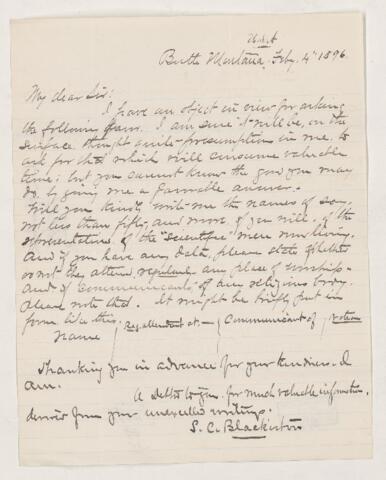 U.S.A
Butte Montana, Feby. 4th 1896
My dear Sir:
I have an object in view for asking
the following favor. I am sure it will be, on the
surface, thought quite presumption in me, to
ask for that which will consume valuable
time; but you cannot know the good you may
do by giving me a favorable answer.
Will you kindly write me the names of say,
not less than fifty, and more if you will, of the
representatives of the "scientific" men now living.
And if you have any data, please state whether
or not they attend, regularly any place of worship.
And if Communicants of any religious body,
please note that. It might be briefly put in
form like this.
Name | Reg. attendant at — | Communicant of |
Thanking you in advance for your kindness. I
am.
A debtor to you for much valuable information,
derived from your unexcelled writings.
S. C. Blackiston